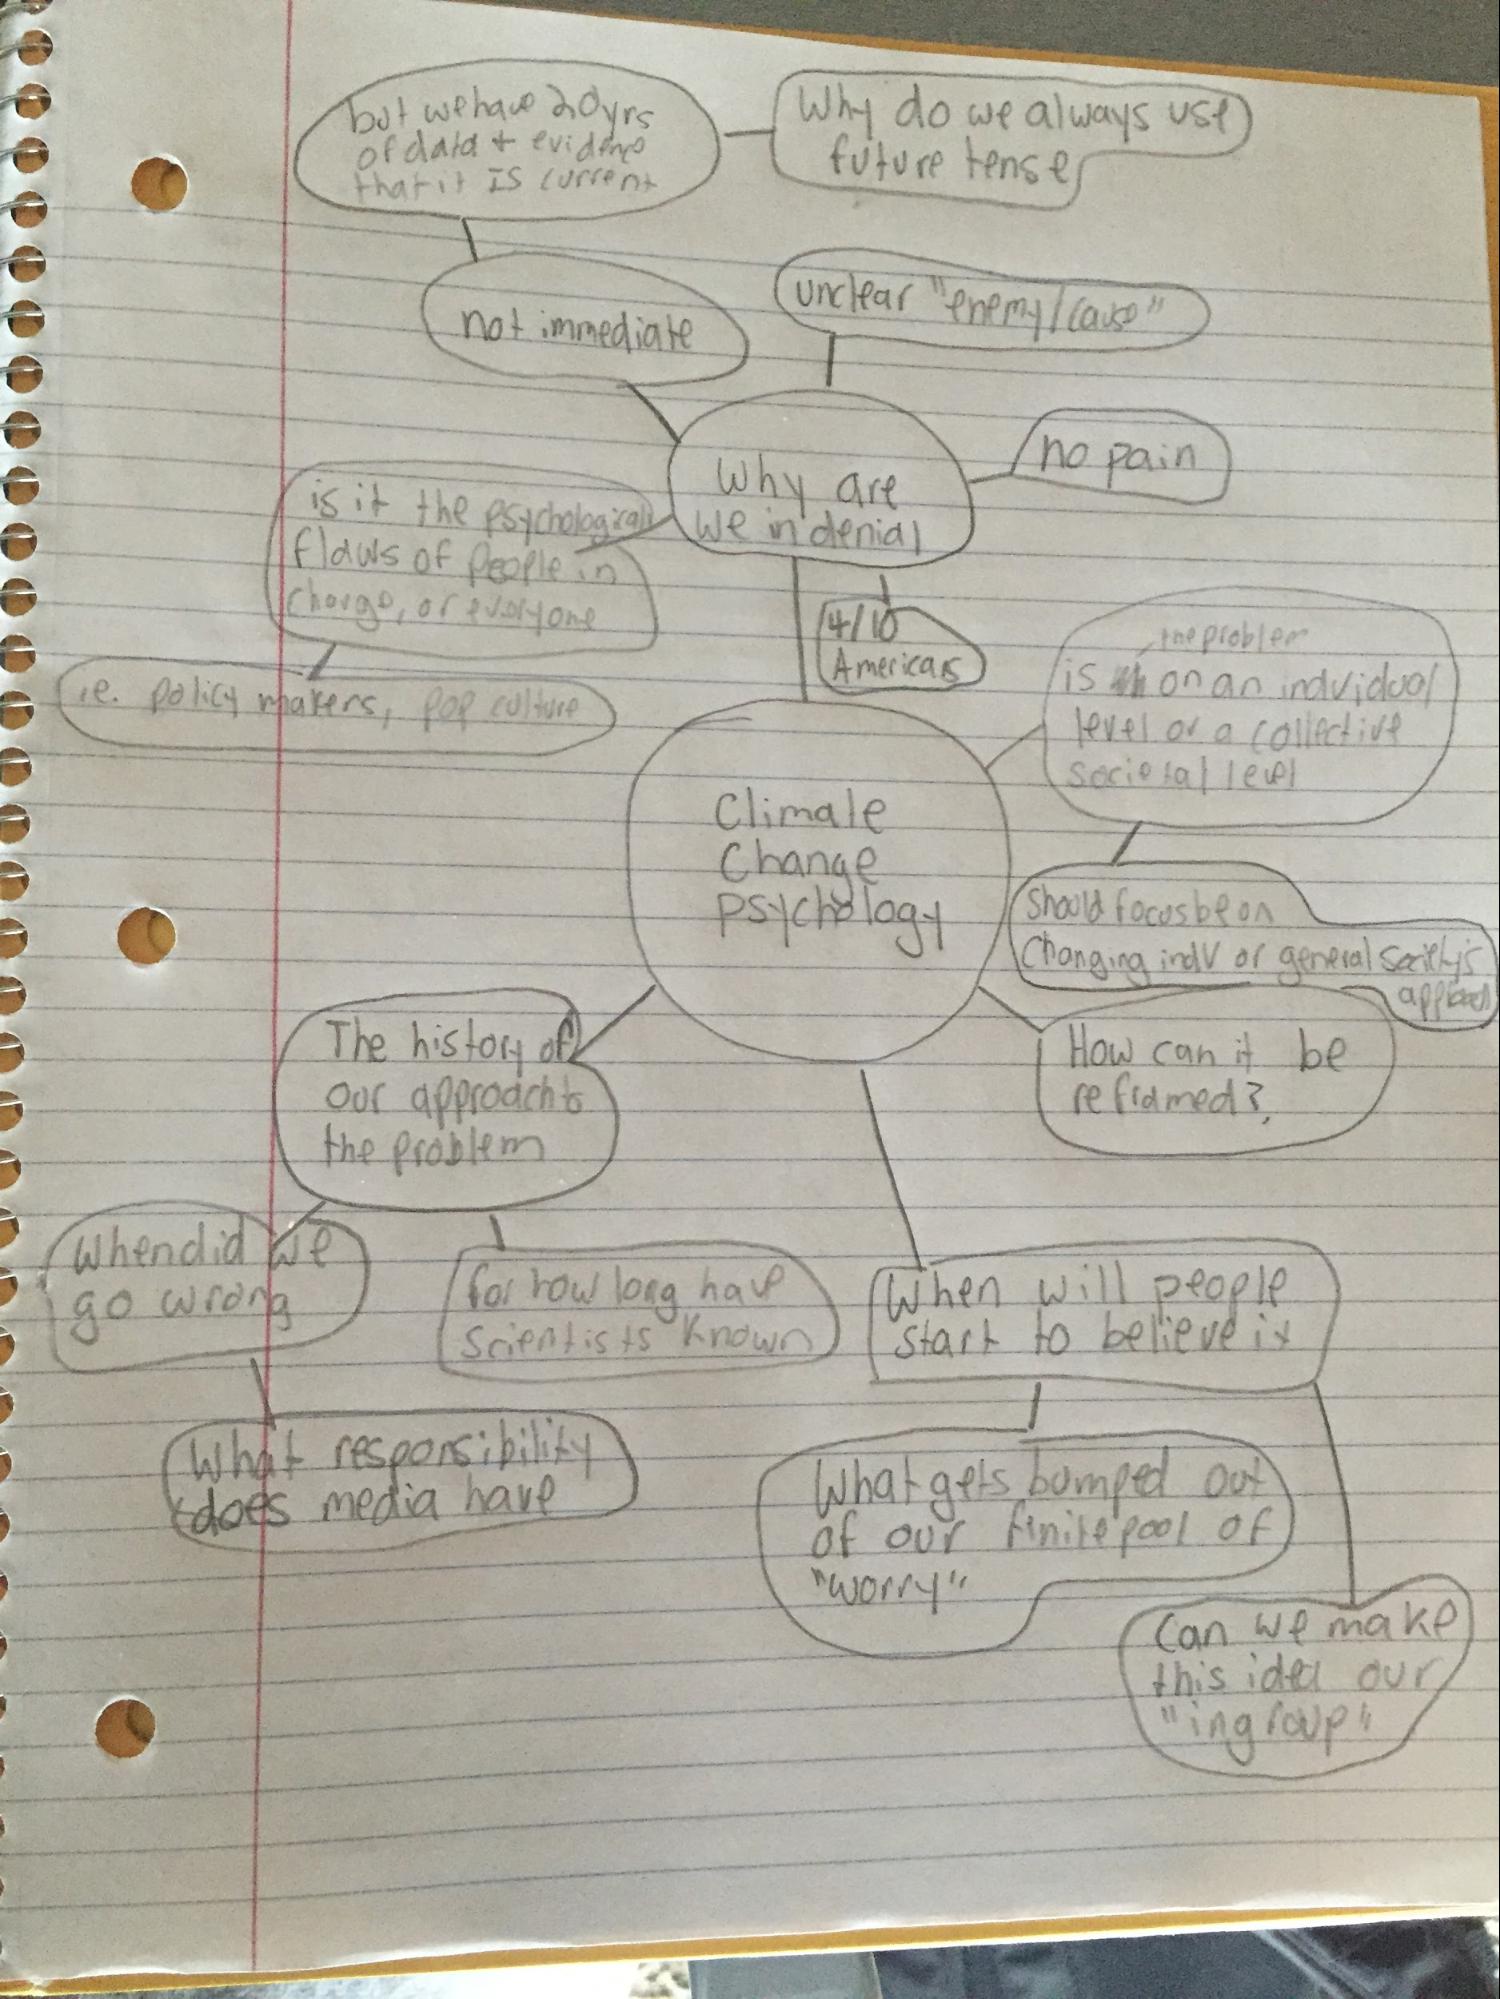 but we have 20yrs
of data + evidence
that it IS current
Why do we always use
future tense
not immediate
unclear "enemy/cause"
Why are
we in denial
no pain
is it the psychological
flaws of people in
charge, or everyone
i.e. policy makers, pop culture
4/10
Americans
the problem
is on an indvidual
level or a collective
societal level
Should focus be on
changing indv or general society's
approach
Climate
Change
psychology
The history of
our approach to
the problem
How can it be
reframed?
When did we
go wrong
for how long have
scientists known
When will people
start to believe it
What responsibility
does media have
What gets bumped out
of our finite pool of
"worry"
Can we make
this idea our
"ingroup"